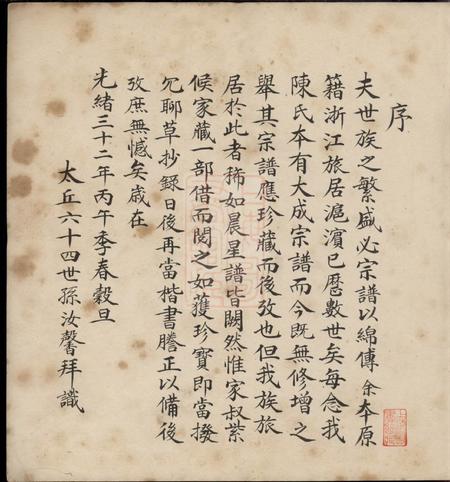 序
夫世族之繁盛必宗譜以綿傳余本原
籍浙江旅居滬濱已歷數世矣每念我
陳氏本有大成宗譜而今既無修增之
舉其宗譜應珍藏而後攷也但我族旅
居於此者稀如晨星譜皆闕然惟家叔紫
候家藏一部借而閱之如獲珍寶即當撥
冗聊草抄錄日後再當楷書謄正以備後
攷庶無憾矣歲在
光緒三十二年丙午季春穀旦
太丘六十四世孫汝馨拜識